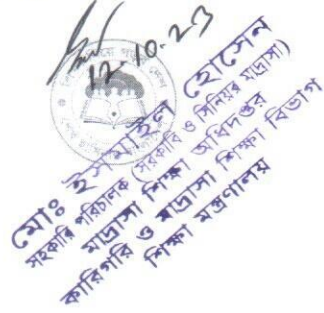 12.10.23
মোঃ ইসমাইল হোসেন
সহকারি পরিচালক (সরকারি ও সিনিয়র মাদ্রাসা)
মাদ্রাসা শিক্ষা অধিদপ্তর
কারিগরি ও মাদ্রাসা শিক্ষা বিভাগ
শিক্ষা মন্ত্রণালয়